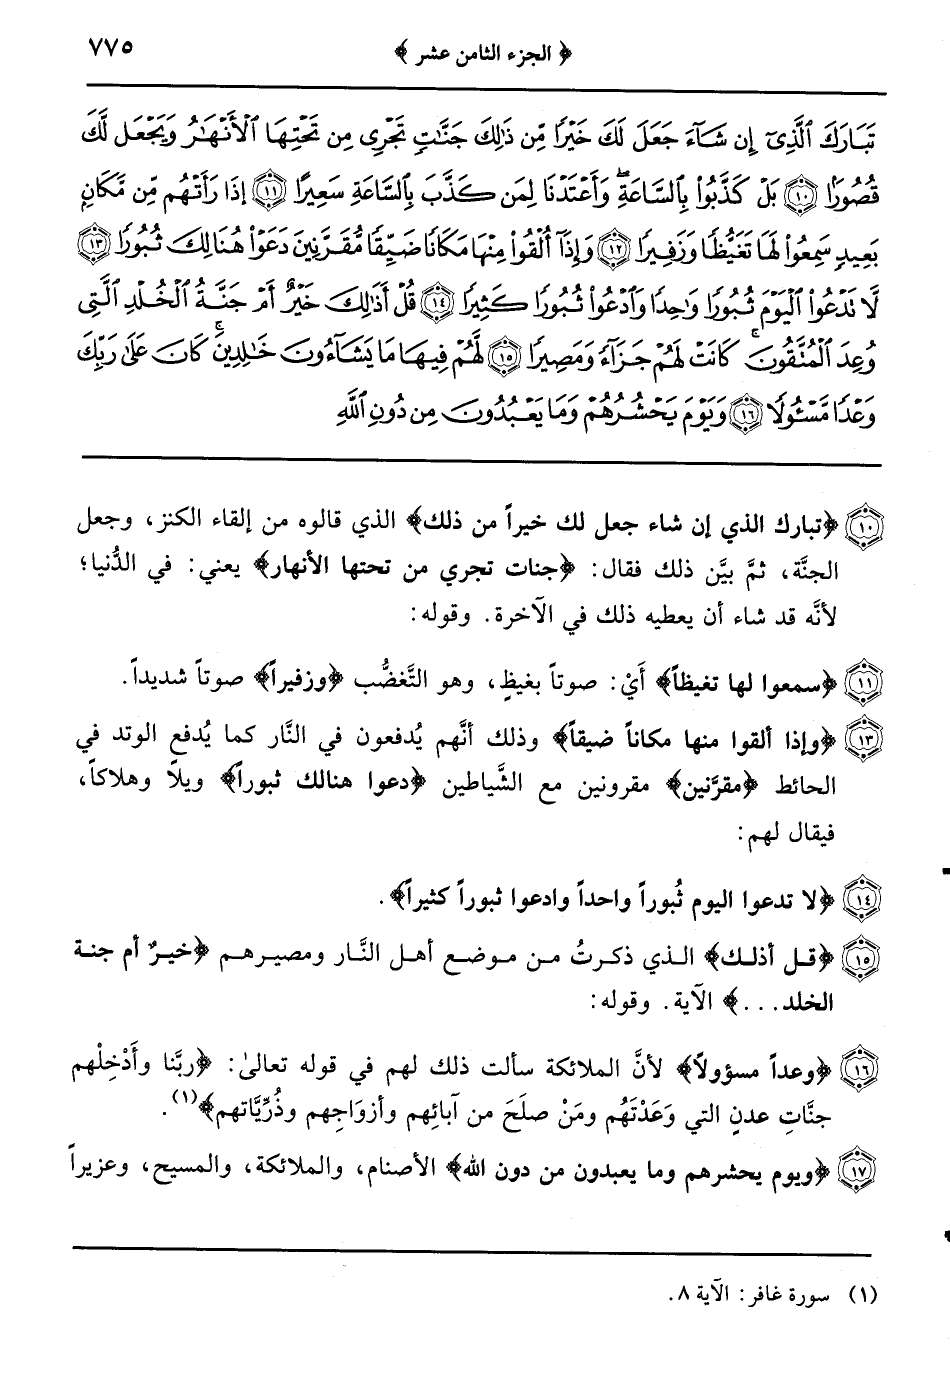 ﴿ الجزء الثامن عشر ﴾ ٧٧٥
تَبَارَكَ ٱلَّذِىٓ إِن شَآءَ جَعَلَ لَكَ خَيْرًا مِّن ذَٰلِكَ جَنَّٰتٍ تَجْرِى مِن تَحْتِهَا ٱلْأَنْهَٰرُ وَيَجْعَل لَّكَ
قُصُورًا ١٠ بَلْ كَذَّبُوا۟ بِٱلسَّاعَةِ ۖ وَأَعْتَدْنَا لِمَن كَذَّبَ بِٱلسَّاعَةِ سَعِيرًا ١١ إِذَا رَأَتْهُم مِّن مَّكَانٍۭ
بَعِيدٍ سَمِعُوا۟ لَهَا تَغَيُّظًا وَزَفِيرًا ١٢ وَإِذَآ أُلْقُوا۟ مِنْهَا مَكَانًا ضَيِّقًا مُّقَرَّنِينَ دَعَوْا۟ هُنَالِكَ ثُبُورًا ١٣
لَّا تَدْعُوا۟ ٱلْيَوْمَ ثُبُورًا وَٰحِدًا وَٱدْعُوا۟ ثُبُورًا كَثِيرًا ١٤ قُلْ أَذَٰلِكَ خَيْرٌ أَمْ جَنَّةُ ٱلْخُلْدِ ٱلَّتِى
وُعِدَ ٱلْمُتَّقُونَ ۚ كَانَتْ لَهُمْ جَزَآءً وَمَصِيرًا ١٥ لَّهُمْ فِيهَا مَا يَشَآءُونَ خَٰلِدِينَ ۚ كَانَ عَلَىٰ رَبِّكَ
وَعْدًا مَّسْـُٔولًا ١٦ وَيَوْمَ يَحْشُرُهُمْ وَمَا يَعْبُدُونَ مِن دُونِ ٱللَّهِ
١٠ ﴿تبارك الذي إن شاء جعل لك خيراً من ذلك﴾ الذي قالوه من إلقاء الكنز، وجعل
الجنَّة، ثمَّ بيَّن ذلك فقال: ﴿جنات تجري من تحتها الأنهار﴾ يعني: في الدُّنيا؛
لأنَّه قد شاء أن يعطيه ذلك في الآخرة. وقوله:
١١ ﴿سمعوا لها تغيظاً﴾ أَيْ: صوتاً بغيظٍ، وهو التَّغضُّب ﴿وزفيراً﴾ صوتاً شديداً.
١٣ ﴿وإذا ألقوا منها مكاناً ضيقاً﴾ وذلك أنَّهم يُدفعون في النَّار كما يُدفع الوتد في
الحائط ﴿مقرَّنين﴾ مقرونين مع الشَّياطين ﴿دعوا هنالك ثبوراً﴾ ويلاً وهلاكاً،
فيقال لهم:
١٤ ﴿لا تدعوا اليوم ثُبوراً واحداً وادعوا ثبوراً كثيراً﴾.
١٥ ﴿قل أذلك﴾ الذي ذكرتُ من موضع أهل النَّار ومصيرهم ﴿خيرٌ أم جنة
الخلد...﴾ الآية. وقوله:
١٦ ﴿وعداً مسؤولاً﴾ لأنَّ الملائكة سألت ذلك لهم في قوله تعالىٰ: ﴿ربَّنا وأَدْخِلْهم
جنَّاتِ عدنٍ التي وَعَدْتَهُم ومَنْ صلَحَ من آبائِهم وأزوَاجِهم وذُرِّيَّاتهم﴾(١).
١٧ ﴿ويوم يحشرهم وما يعبدون من دون الله﴾ الأصنام، والملائكة، والمسيح، وعزيراً
(١) سورة غافر: الآية ٨.